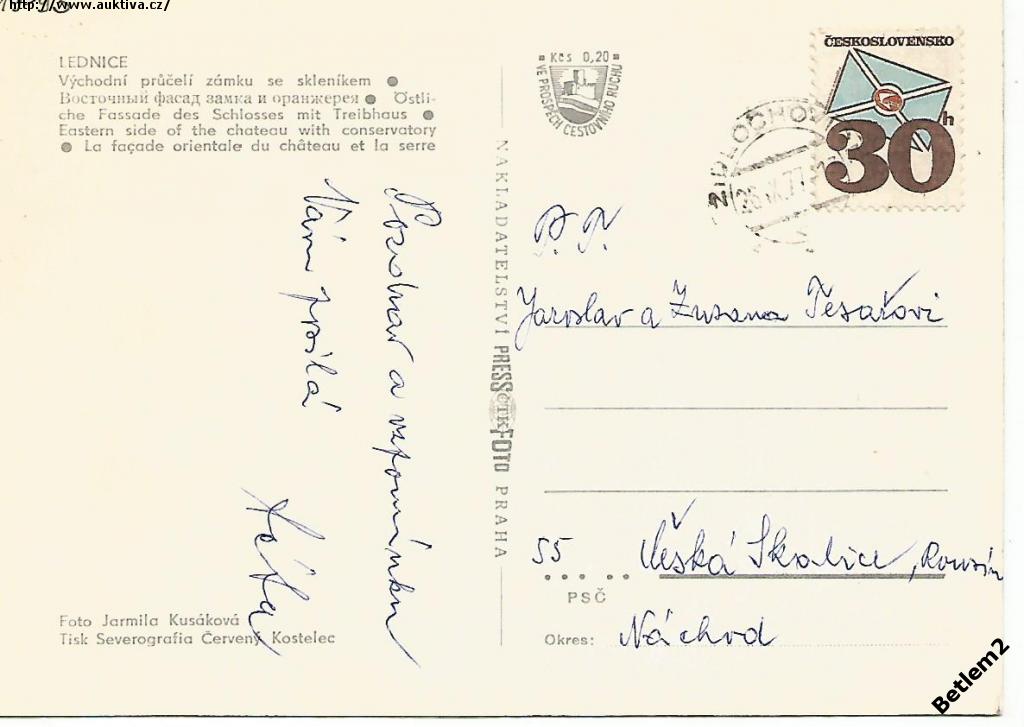 http://www.auktiva.cz/
LEDNICE
Východní průčelí zámku se skleníkem ●
Восточный фасад замка и оранжерея ● Östli-
che Fassade des Schlosses mit Treibhaus ●
● Eastern side of the chateau with conservatory
● La façade orientale du château et la serre
Pozdrav a vzpomínku
Vám posílá
Foto Jarmila Kusáková
Tisk Severografia Červený Kostelec
NAKLADATELSTVÍ PRESSFOTO PRAHA
ČTK
Kčs 0,20
VE PROSPĚCH CESTOVNÍHO RUCHU
ČESKOSLOVENSKO
30h
ŽIDLOCHOV
P. T.
Jaroslav a Zuzana Tesařovi
55 Česká Skalice,
PSČ
Okres: Náchod
Betlem2